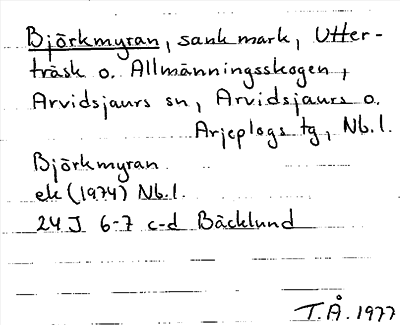 Björkmyran, sank mark, Utter-
träsk o. Allmänningsskogen,
Arvidsjaurs sn, Arvidsjaurs o.
Arjeplogs tg, Nb.l.
Björkmyran
ek (1974) Nb.l.
24J 6-7 c-d Bäcklund
T.Å. 1977